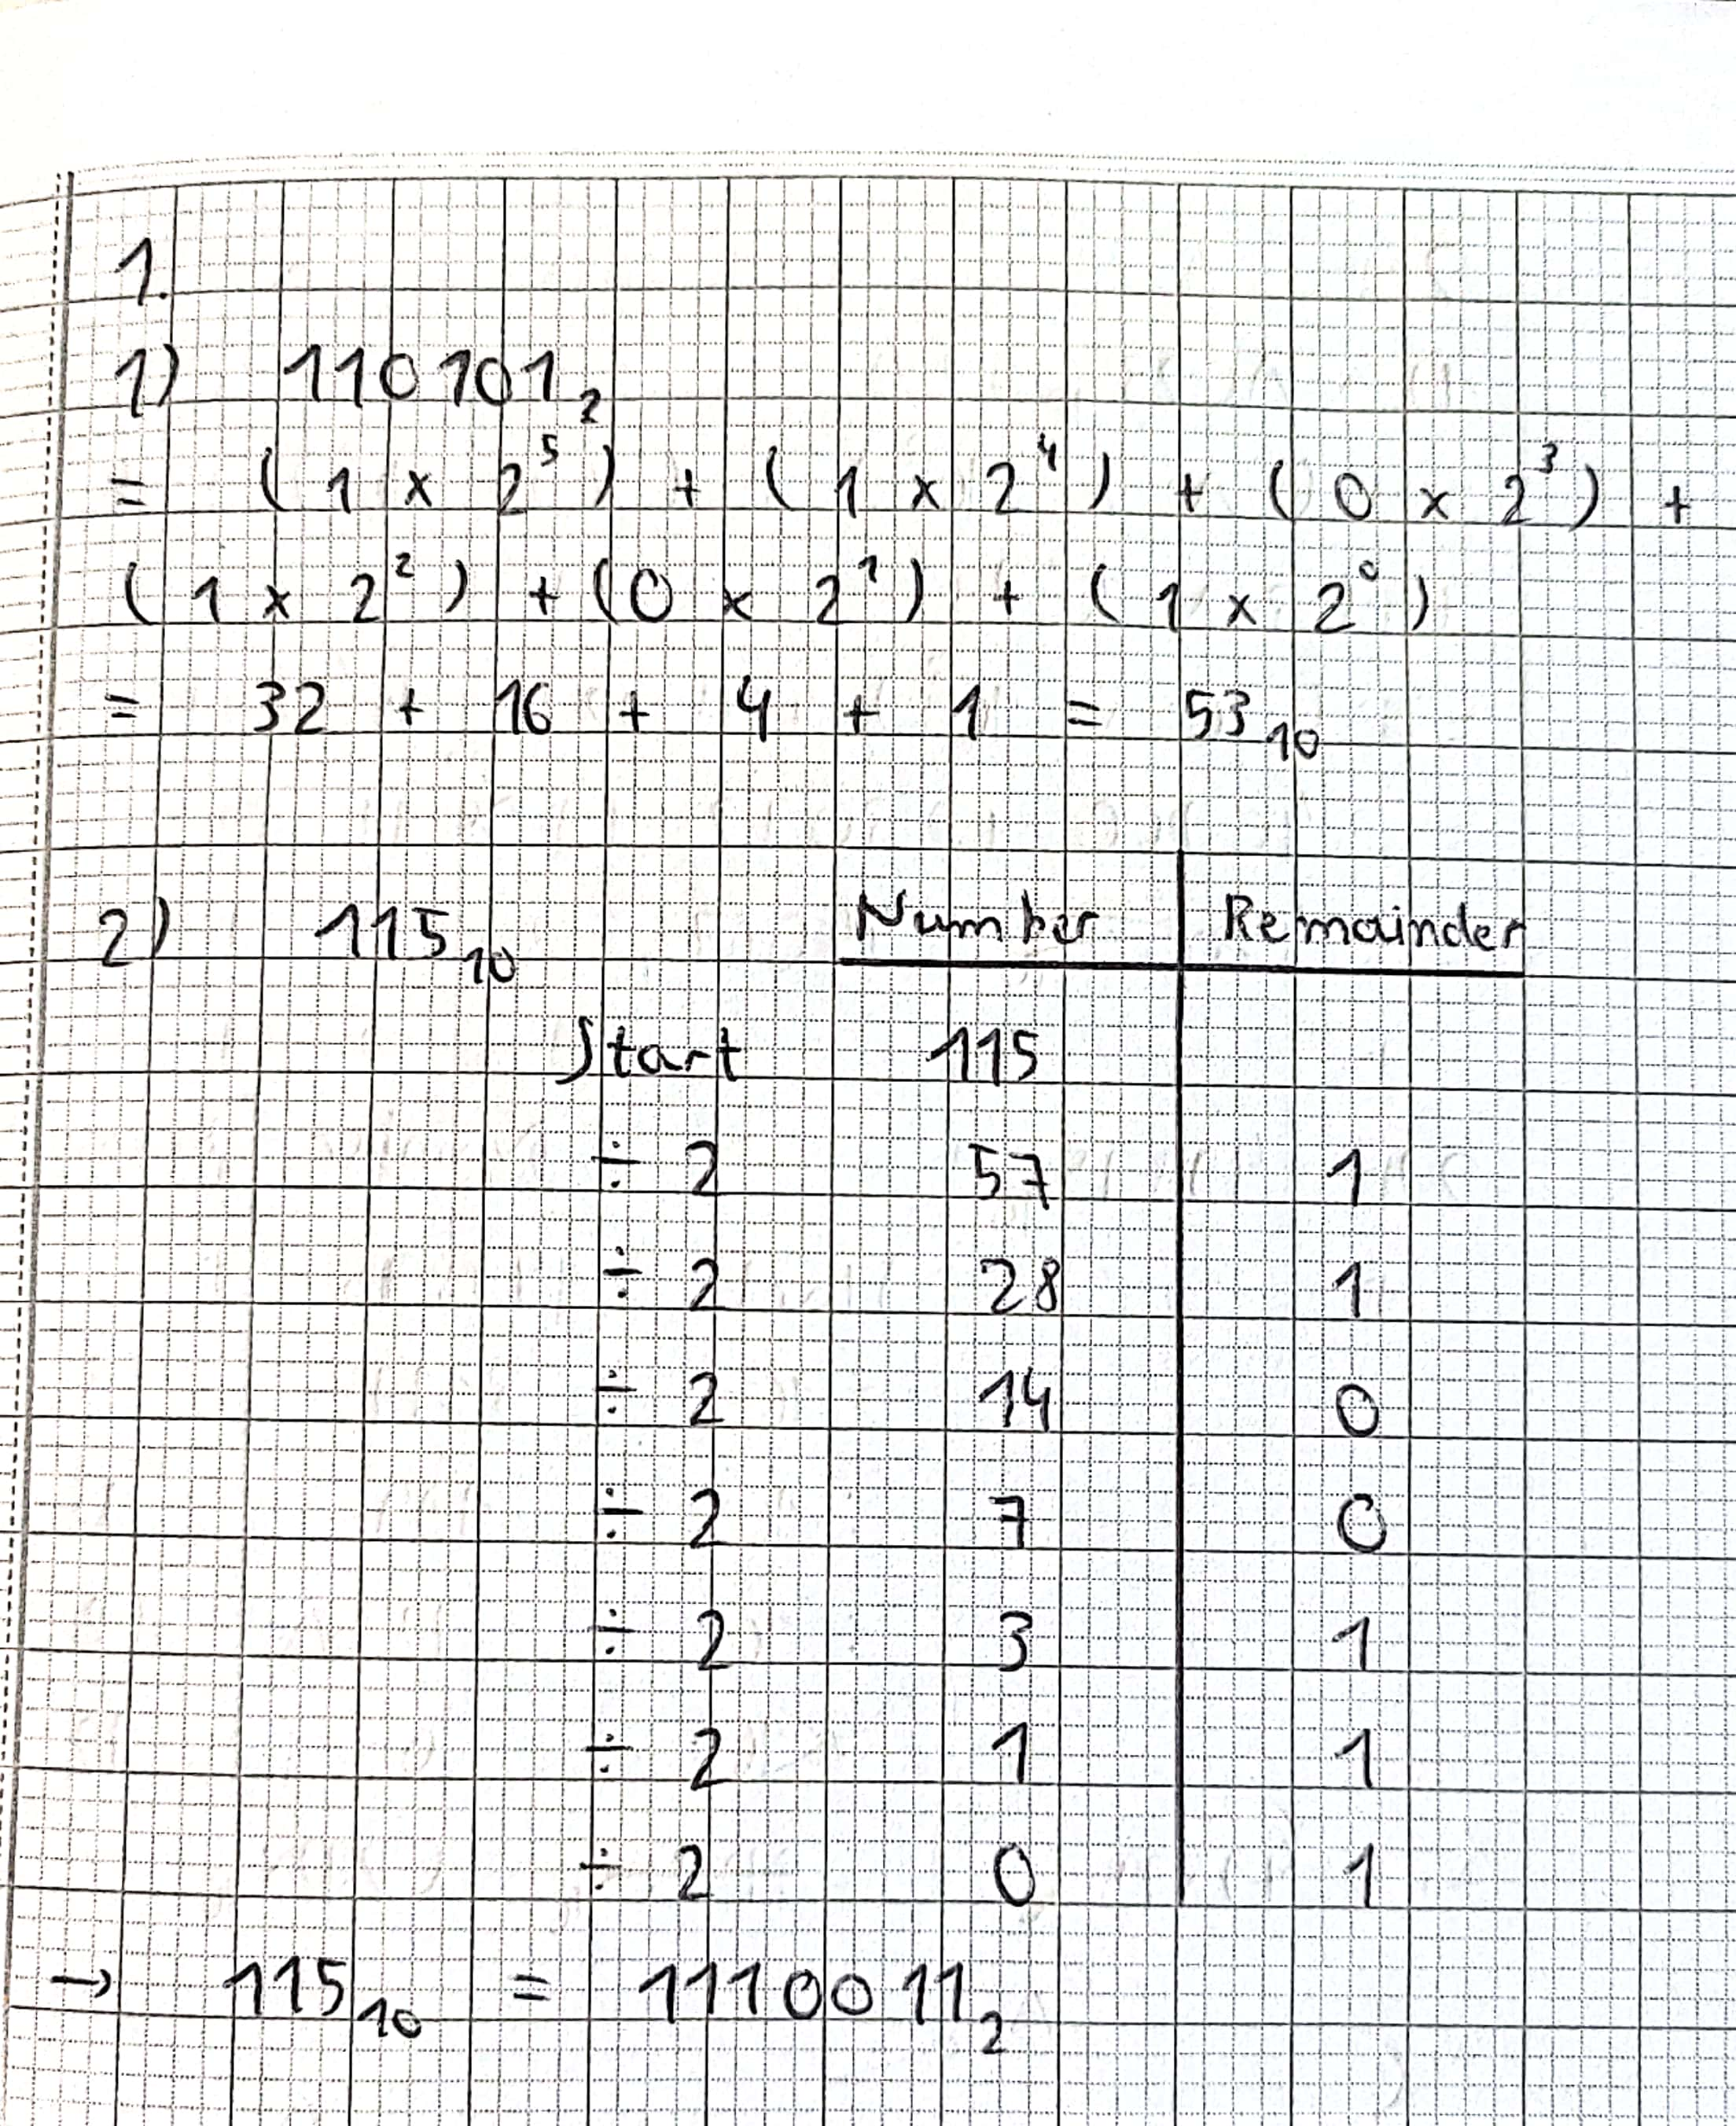 1.
1) 110101₂
= (1 x 2⁵) + (1 x 2⁴) + (0 x 2³) +
(1 x 2²) + (0 x 2¹) + (1 x 2⁰)
= 32 + 16 + 4 + 1 = 53₁₀
2) 115₁₀ Number Remainder
Start 115
÷ 2 57 1
÷ 2 28 1
÷ 2 14 0
÷ 2 7 0
÷ 2 3 1
÷ 2 1 1
÷ 2 0 1
→ 115₁₀ = 1110011₂